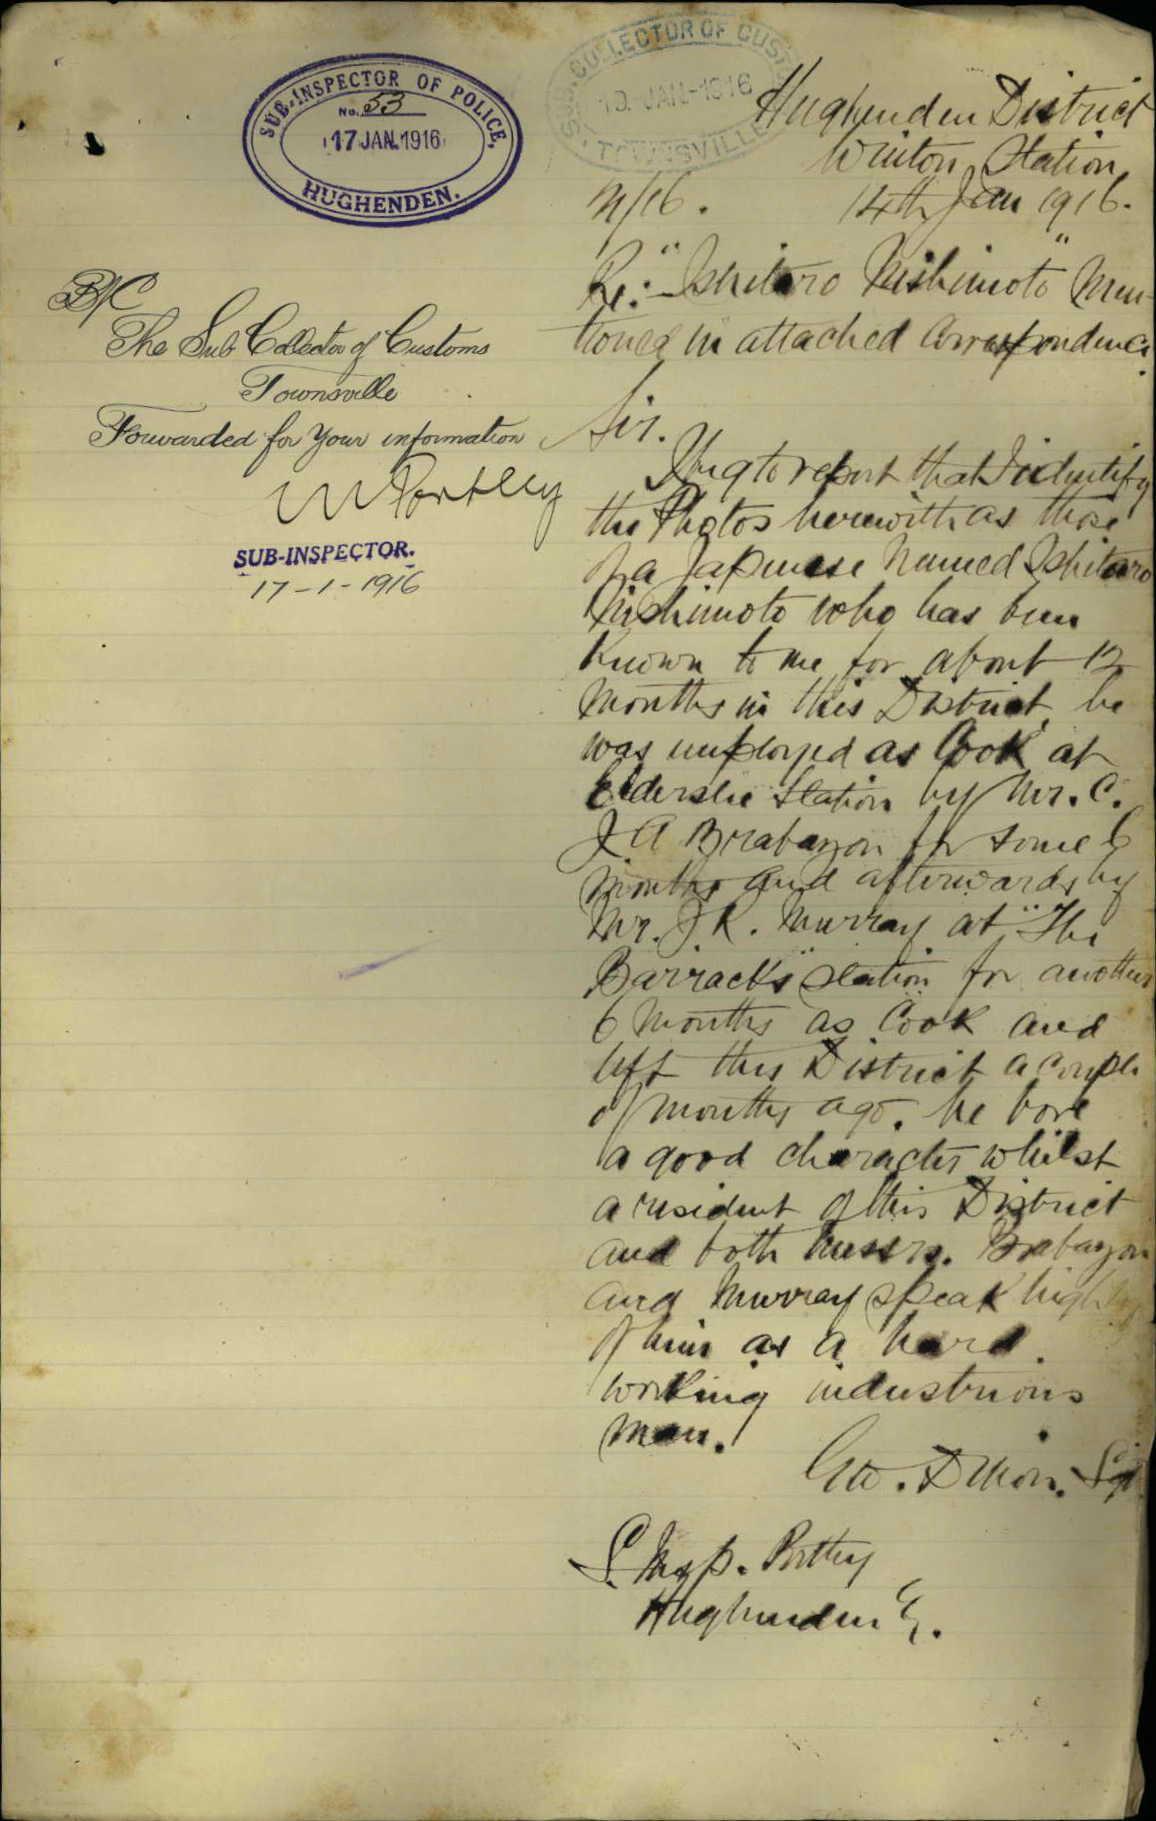 SUB-INSPECTOR OF POLICE,
No. 53
17 JAN. 1916
HUGHENDEN.
SUB. COLLECTOR OF CUSTOMS
19. JAN-1916
TOWNSVILLE
Hughenden District
Winton Station
14th Jan 1916.
Re:- "Ishitaro Nishimoto" Men-
tioned in attached Correspondence.
B/C
The Sub Collector of Customs
Townsville
Forwarded for your information
W Portley
SUB-INSPECTOR.
17-1-1916
Sir.
I beg to report that I identify
the Photos herewith as those
of a Japenese Named Ishitaro
Nishimoto who has been
Known to me for about 12
Months in this District, he
was employed as Cook at
Elderslie Station by Mr. C.
J. A Brabazon for some 6
months and afterwards by
Mr. J. R. Murray at "The
Barracks" station for another
6 Months as Cook and
left this District a couple
of months ago. he bore
a good character whilst
a resident of this District
and both Messrs. Brabazon
and Murray speak highly
of him as a hard
working industrious
man.
Geo. Dixon. Sgt
S. Insp. Portley
Hughenden